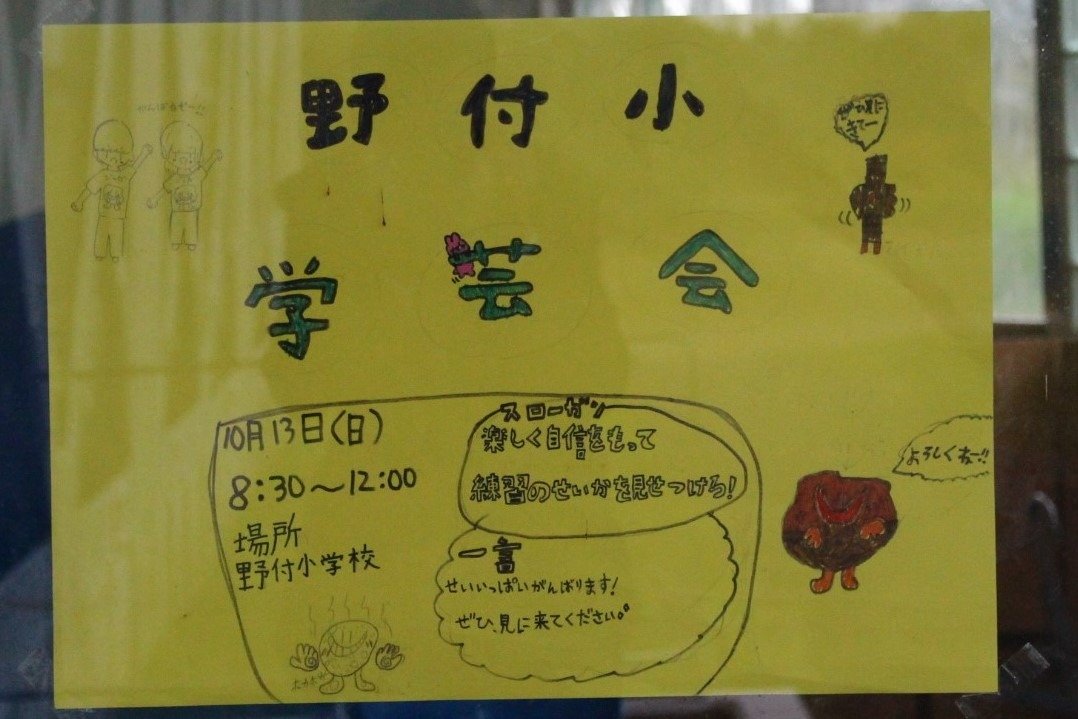 野付小
学芸会
がんばるぞー!!
ぜひ見に
きてー
10月13日(日)
8:30～12:00
場所
野付小学校
スローガン
楽しく自信をもって
練習のせいかを見せつけろ!
一言
せいいっぱいがんばります!
ぜひ、見に来てください。
よろしくねー!!
ホカホカ